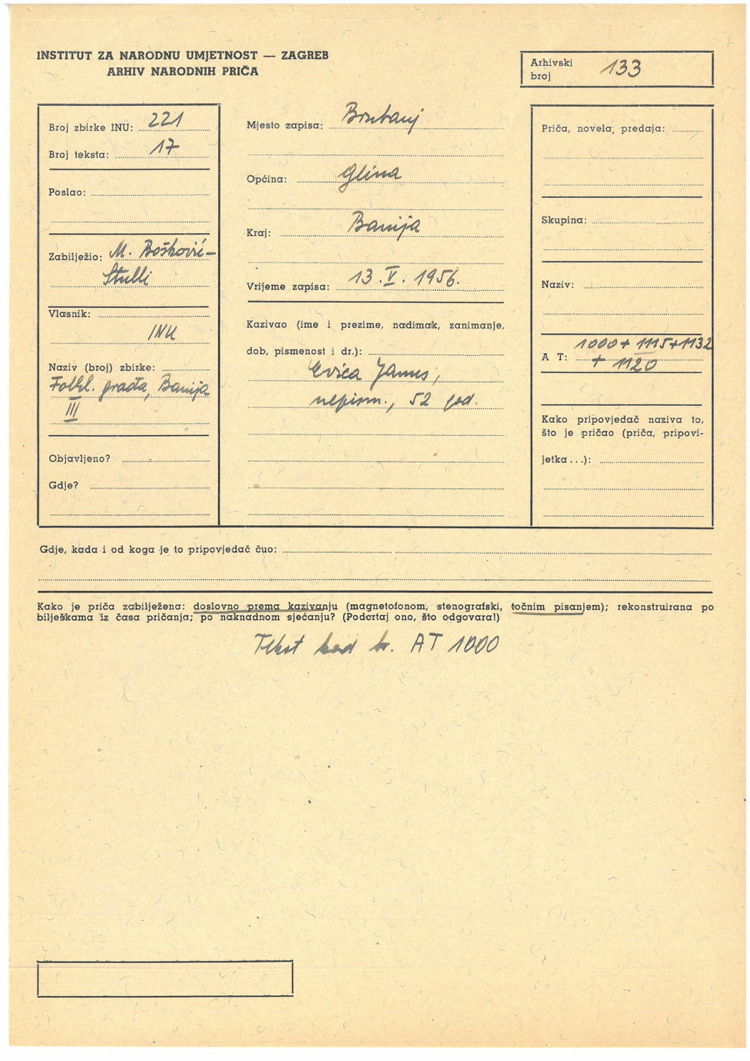 INSTITUT ZA NARODNU UMJETNOST — ZAGREB
ARHIV NARODNIH PRIČA
Arhivski broj 133
Broj zbirke INU: 221
Broj teksta: 17
Poslao:
Zabilježio: M. Bošković-
Stulli
Vlasnik:
INU
Naziv (broj) zbirke:
Folkl. građa, Banija
III
Objavljeno?
Gdje?
Mjesto zapisa: Brubanj
Općina: Glina
Kraj: Banija
Vrijeme zapisa: 13. V. 1956.
Kazivao (ime i prezime, nadimak, zanimanje,
dob, pismenost i dr.):
Evica Janus,
nepism., 52 god.
Priča, novela, predaja:
Skupina:
Naziv:
A T: 1000 + 1115 + 1132
+ 1120
Kako pripovjedač naziva to,
što je pričao (priča, pripovi-
jetka...):
Gdje, kada i od koga je to pripovjedač čuo:
Kako je priča zabilježena: doslovno prema kazivanju (magnetofonom, stenografski, točnim pisanjem); rekonstruirana po
bilješkama iz časa pričanja; po naknadnom sjećanju? (Podcrtaj ono, što odgovara!)
Tekst kod br. AT 1000